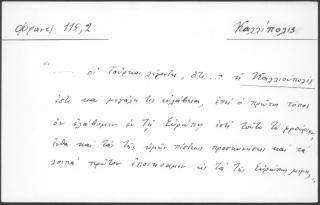 Φραντ. 115,2
Καλλίπολις
"..... οἱ Τοῦρκοι λέγοντες, ὅτι ... ἡ Καλλιούπολις
ἐστὶ καὶ μεγάλη της εὐλάβεια, ἐπεὶ ὁ πρῶτος τόπος
ὃν ἐλάβομεν ἐν τῇ Εὐρώπῃ ἐστὶ τοῦτο τὸ φρούριον,
ἔνθα καὶ τὰ τῆς ἡμῶν πίστεως προσκυνήσεις καὶ τὰ
λοιπὰ πρῶτον ἐποιήσαμεν εἰς τὰ τῆς Εὐρώπης μέρη,..